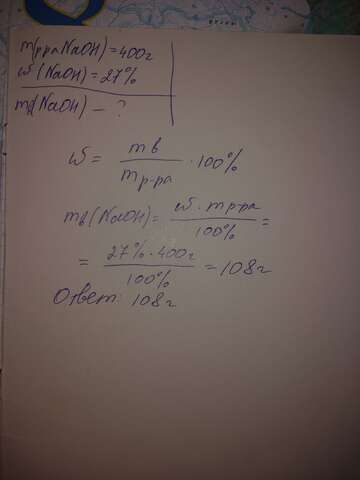 m(р-ра NaOH) = 400г
ω(NaOH) = 27%
mв(NaOH) - ?
ω = mв / mр-ра · 100%
mв(NaOH) = ω · mр-ра / 100% =
= 27% · 400г / 100% = 108г
Ответ: 108г